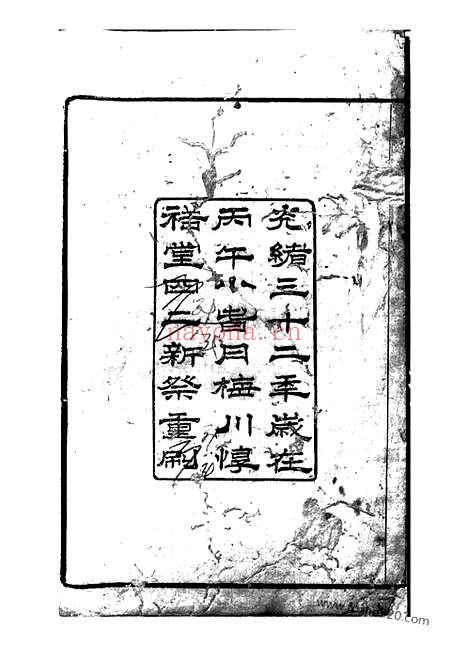 光緒三十二年歲在
丙午小春月梅川惇
裕堂四二新祭重刷
nayona.cn